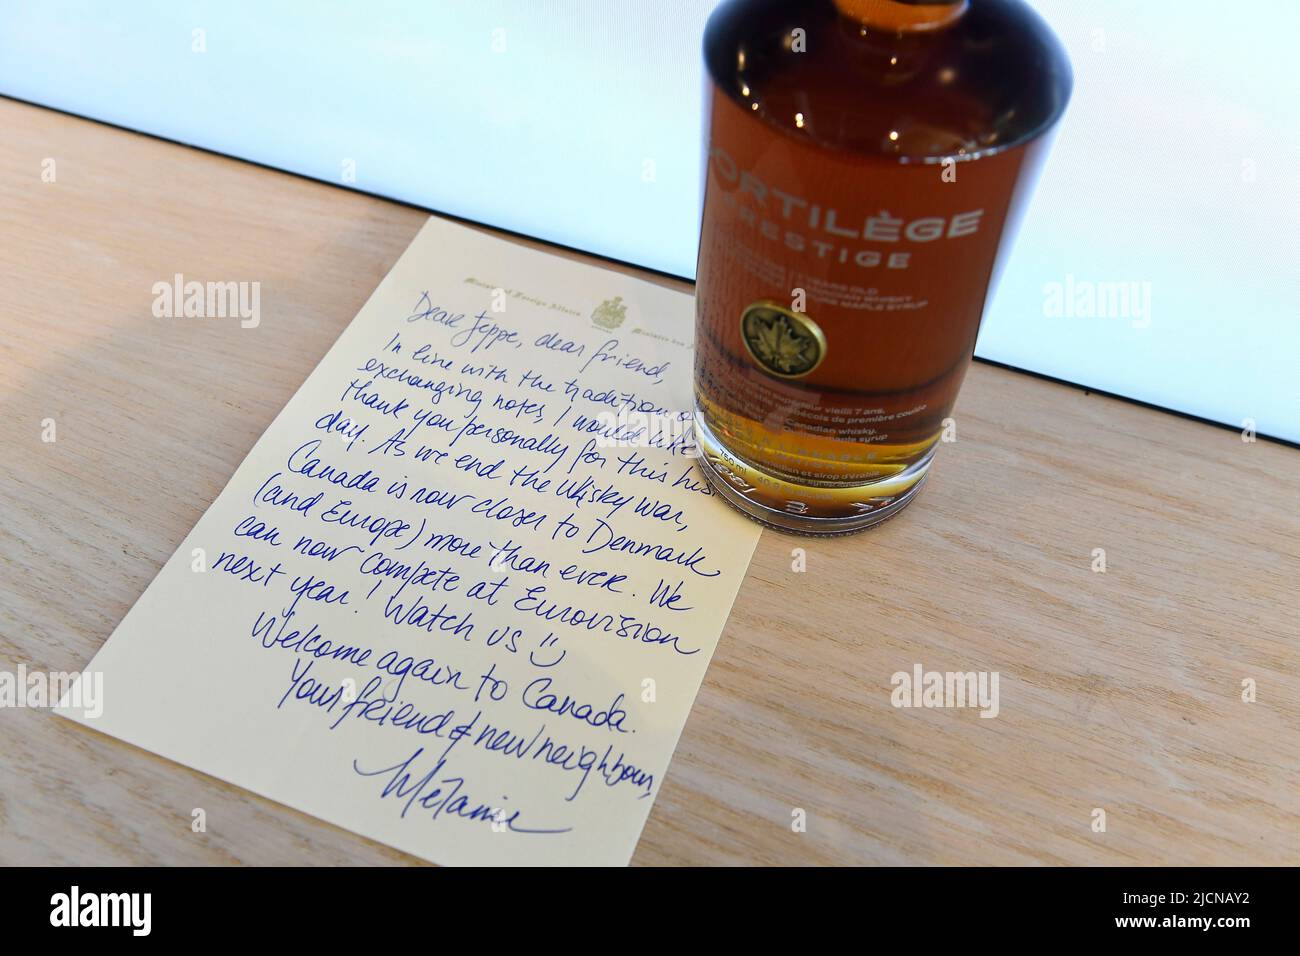 ORTILÈGE
PRESTIGE
7 YEARS OLD
CANADIAN WHISKY
MAPLE SYRUP
supérieur vieilli 7 ans,
québécois de première coulée
Canadian whisky,
maple syrup
750 ml
et sirop d'érable
Minister of Foreign Affairs
Dear Jeppe, dear friend,
In line with the tradition o
exchanging notes, I would like
thank you personally for this hist
day. As we end the Whisky war,
Canada is now closer to Denmark
(and Europe) more than ever. We
can now compete at Eurovision
next year! Watch us
Welcome again to Canada.
Your friend & new neighbour,
Mélanie
alamy
alamy
alamy
alamy
Image ID: 2JCNAY2
www.alamy.com